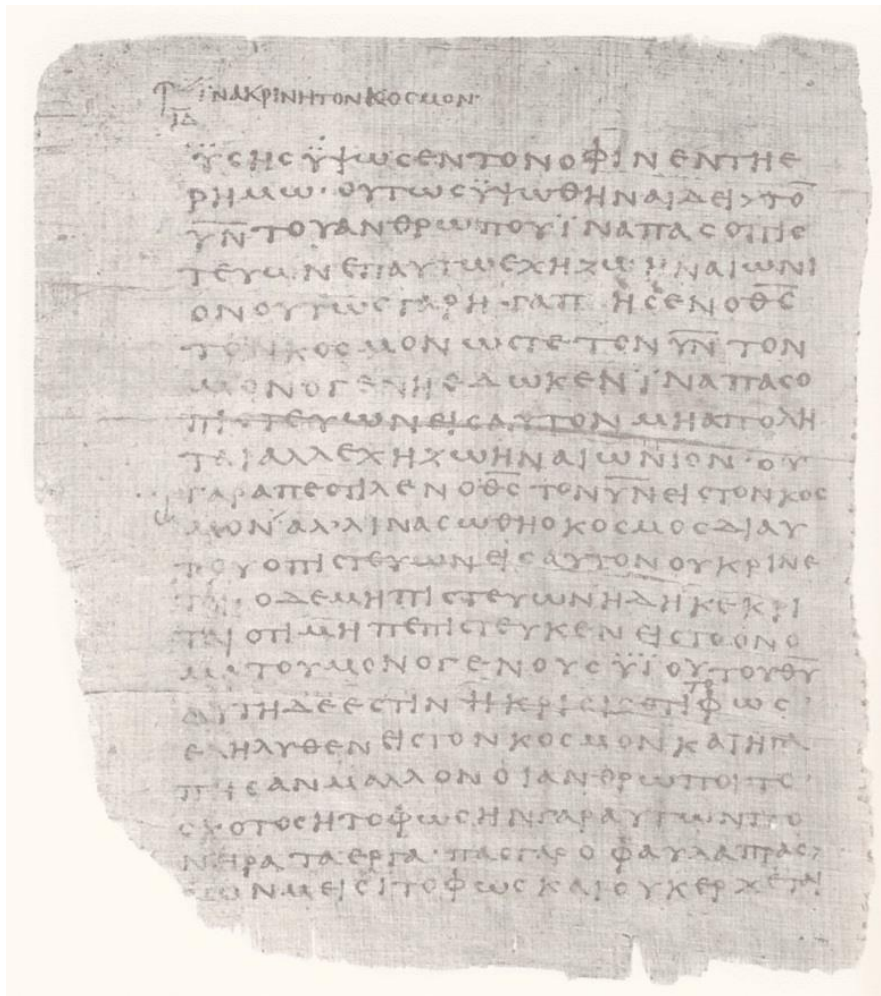 ϊΝΑΚΡΙΝΗΤΟΝΚΟCΜΟΝ
ΙΔ
ΫCΗCΫΨΩCΕΝΤΟΝΟΦΙΝΕΝΤΗΕ
ΡΗΜΩ·ΟΥΤΩCΫΨΩΘΗΝΑΙΔΕΙ>ΤΟ̅
Υ̅Ν̅ΤΟΥΑΝΘΡΩΠΟΥΪΝΑΠΑCΟΠΙC
ΤΕΥΩΝΕΠΑΥΤΩΕΧΗΖΩΗΝΑΙΩΝΙ
ΟΝΟΥΤΩCΓΑΡΗΓΑΠΗCΕΝΟΘ̅C̅
ΤΟΝΚΟCΜΟΝΩCΤΕΤΟΝΥ̅Ν̅ΤΟΝ
ΜΟΝΟΓΕΝΗΕΔΩΚΕΝΪΝΑΠΑCΟ
ΠΙCΤΕΥΩΝΕΙCΑΥΤΟΝΜΗΑΠΟΛΗ
ΤΑΙΑΛΛΕΧΗΖΩΗΝΑΙΩΝΙΟΝ·ΟΥ
ΓΑΡΑΠΕCΤΙΛΕΝΟΘ̅C̅ΤΟΝΥ̅Ν̅ΕΙCΤΟΝΚΟC
ΜΟΝΑΛ·ΛΙΝΑCΩΘΗΟΚΟCΜΟCΔΙΑΥ
ΤΟΥΟΠΙCΤΕΥΩΝΕΙCΑΥΤΟΝΟΥΚΡΙΝΕ
ΤΑΙ·ΟΔΕΜΗΠΙCΤΕΥΩΝΗΔΗΚΕΚΡΙ
ΤΑΙΟΤΙΜΗΠΕΠΙCΤΕΥΚΕΝΕΙCΤΟΟΝΟ
ΜΑΤΟΥΜΟΝΟΓΕΝΟΥCΫΪΟΥΤΟΥΘ̅Υ̅
ΑΥΤΗΔΕΕCΤΙΝΗΚΡΙCΙCΟΤΙΤΟΦΩC
ΕΛΗΛΥΘΕΝΕΙCΤΟΝΚΟCΜΟΝΚΑΙΗΓΑ
ΠΗCΑΝΜΑΛΛΟΝΟΙΑΝΘΡΩΠΟΙΤΟ
CΚΟΤΟCΗΤΟΦΩCΗΝΓΑΡΑΥΤΩΝΠΟ
ΝΗΡΑΤΑΕΡΓΑ·ΠΑCΓΑΡΟΦΑΥΛΑΠΡΑC>
CΩΝΜΕΙCΙΤΟΦΩCΚΑΙΟΥΚΕΡΧΕΤΑΙ